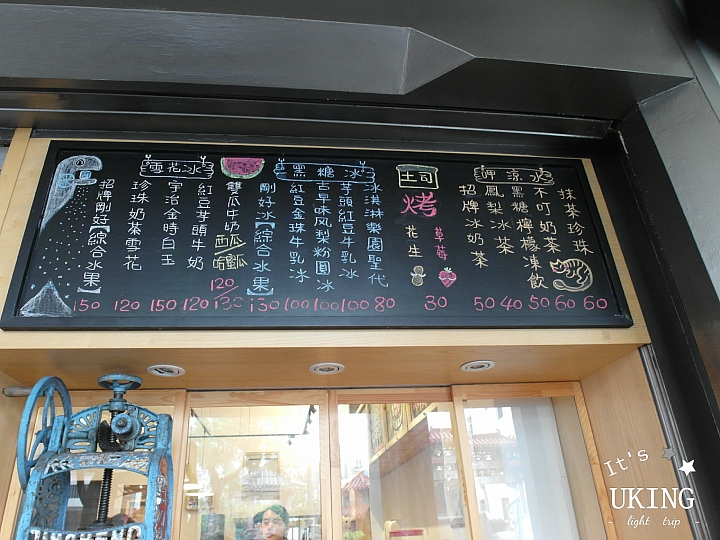 雪花冰
招牌剛好【綜合水果】
150
珍珠奶茶雪花
120
宇治金時白玉
150
紅豆芋頭牛奶
120
雙瓜牛奶
西瓜
120
130
黑糖冰
剛好冰【綜合水果】
130
紅豆金珠牛乳冰
100
古早味风梨粉圓冰
100
芋頭紅豆牛乳冰
100
冰淇淋樂園聖代
80
土司
烤
花生
草莓
30
呷涼
招牌冰奶茶
50
鳳梨冰茶
40
黑糖檸檬凍飲
50
不叮奶茶
60
抹茶珍珠
60
It's
UKING
- light trip -